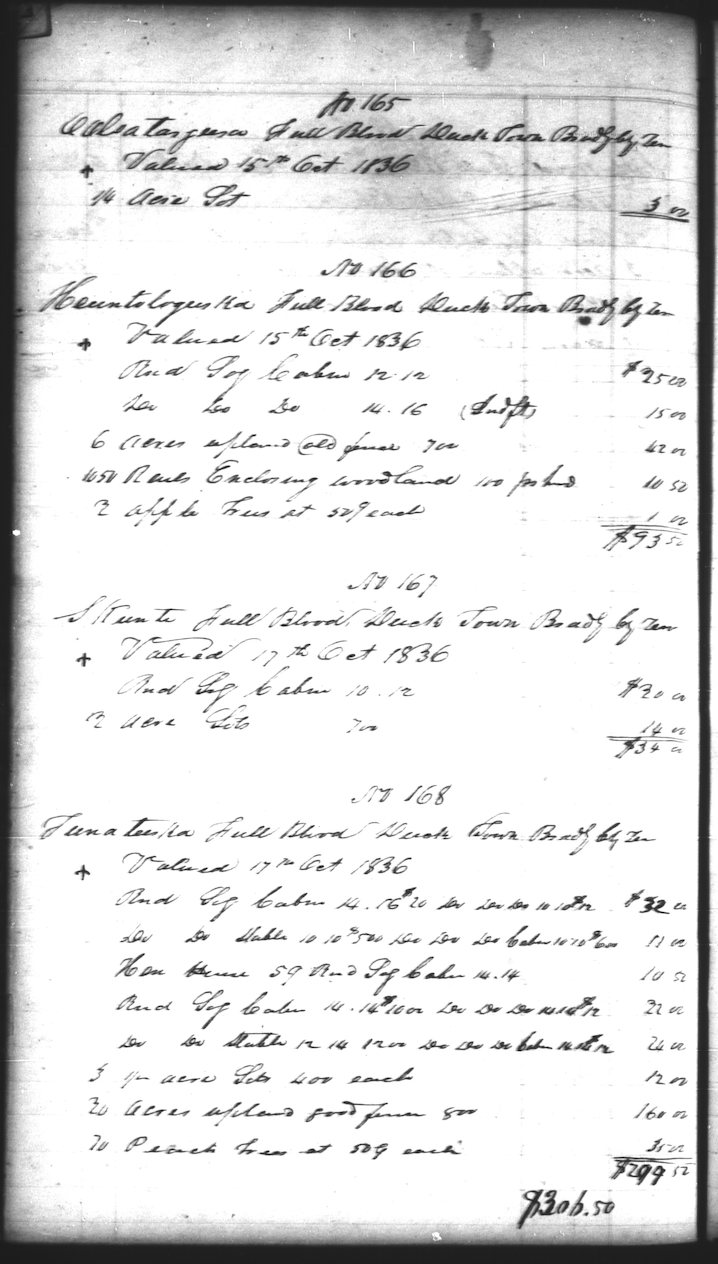 No 165
Full Blood Duck Town Bradly by Ten
Valued 15th Oct 1836
1/4 Acre Lot 3 00
No 166
Heuntologuska Full Blood Duck Town Bradly by Ten
Valued 15th Oct 1836
Rnd Log Cabin 12.12 $25 00
Do Do Do 14.16 15 00
6 Acres upland old fence 700 42 00
1050 Rails Enclosing woodland 100 10 50
2 apple trees at 50¢ each 1 00
$93 50
No 167
Skunte Full Blood Duck Town Bradly by Ten
Valued 17th Oct 1836
Rnd Log Cabin 10.12 $20 00
2 acre Lots 700 14 00
$34 00
No 168
Full Blood Duck Town Bradly by Ten
Valued 17th Oct 1836
Rnd Log Cabin 14.16 $20 Do Do Do 10 10 $12 $32 00
Do Do Stable 10 10 $500 Do Do Do Cabin 10 10 $600 11 00
Hen House 50 Rnd Log Cabin 14.14 10 50
Rnd Log Cabin 14.14 $1000 Do Do Do 14 14 $12 22 00
Do Do Stable 12 14 1200 Do Do Do Cabin 14 $12 24 00
3 acre Lots 400 each 12 00
20 Acres upland good fence 800 160 00
70 Peach trees at 50¢ each 35 00
$299 50
$306.50